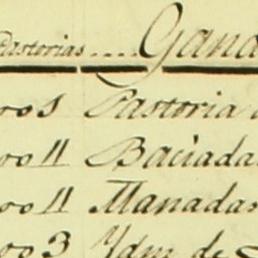 Pastorias.... Gana
ros Pastoria
ro II Baciada
ro II Manadas
ro 3 Ydm de